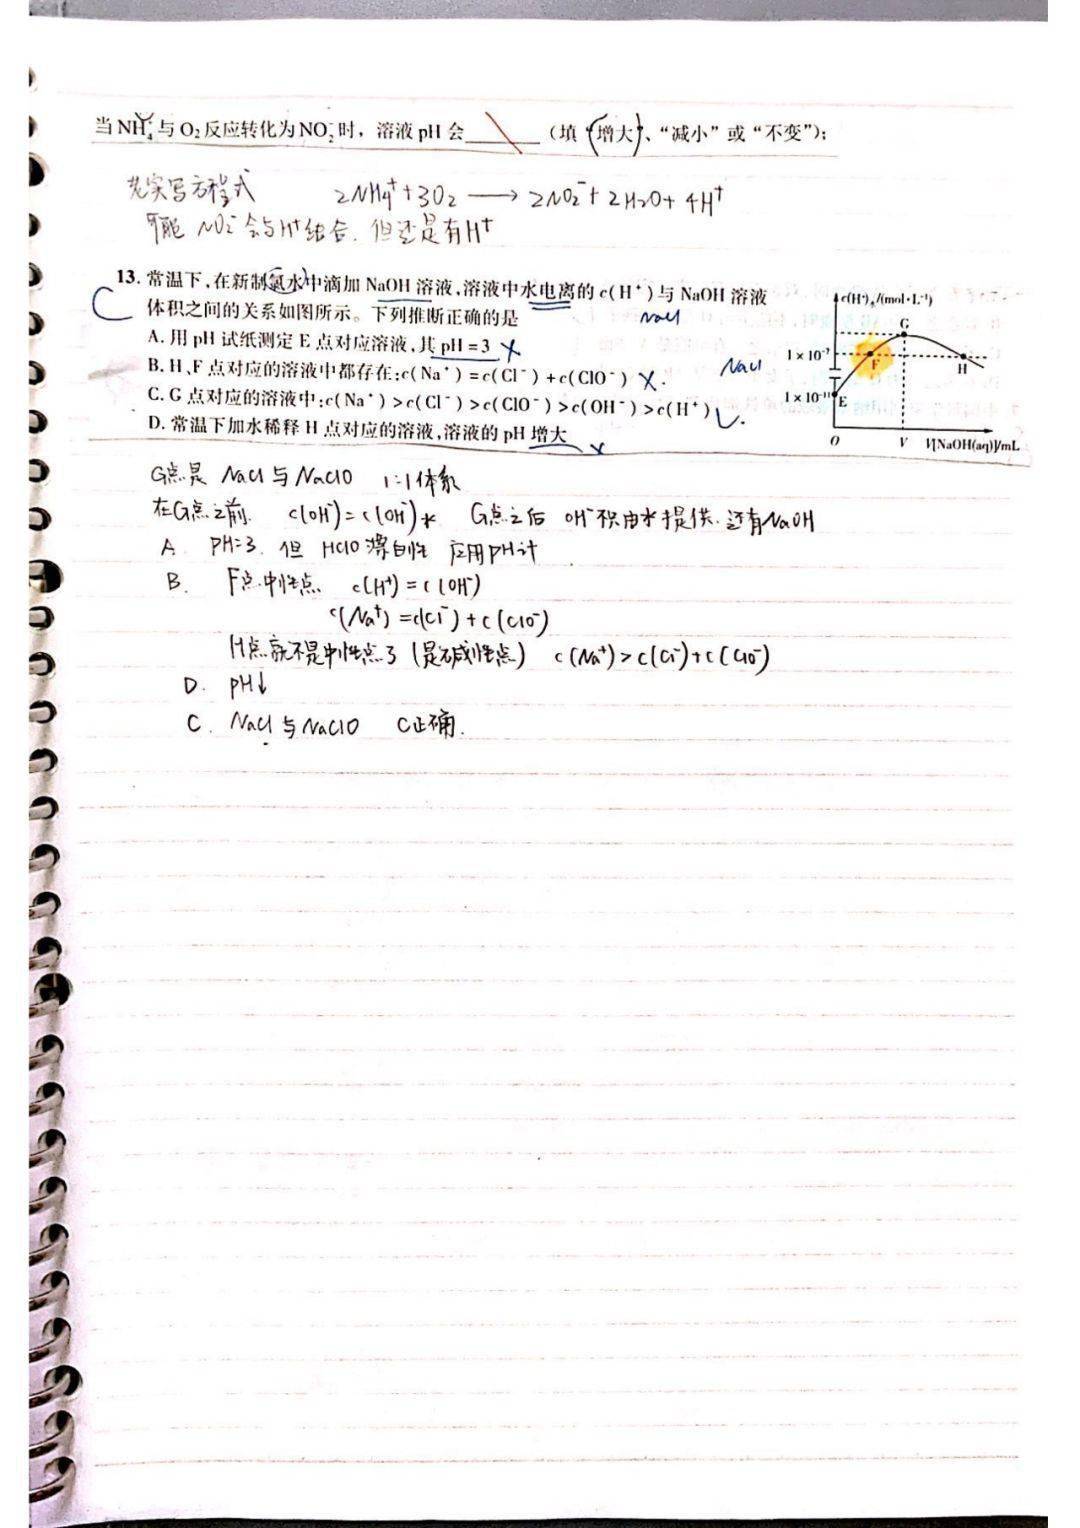 当NH₄⁺与O₂反应转化为NO₂⁻时，溶液pH会______（填“增大”、“减小”或“不变”）；
先实写方程式 2NH₄⁺+3O₂ ⟶ 2NO₂⁻+2H₂O+4H⁺
可能NO₂⁻会与H⁺结合．但还是有H⁺
C
13. 常温下,在新制氯水中滴加 NaOH 溶液,溶液中水电离的 c(H⁺)与 NaOH 溶液
体积之间的关系如图所示。下列推断正确的是
NaCl
A. 用 pH 试纸测定 E 点对应溶液,其 pH=3 ×
B. H、F 点对应的溶液中都存在:c(Na⁺)=c(Cl⁻)+c(ClO⁻) ×.
NaCl
C. G 点对应的溶液中:c(Na⁺)>c(Cl⁻)>c(ClO⁻)>c(OH⁻)>c(H⁺) ✓.
D. 常温下加水稀释 H 点对应的溶液,溶液的 pH 增大 ×
c(H⁺)水/(mol·L⁻¹)
G
1×10⁻⁷
F
H
1×10⁻¹¹
E
O
V
V[NaOH(aq)]/mL
G点是 NaCl与NaClO 1:1体系
在G点之前. c(OH⁻)=c(OH⁻)水 G点之后 OH⁻不只由水提供.还有NaOH
A. PH=3．但 HClO漂白性 应用PH计
B. F点.中性点. c(H⁺)=c(OH⁻)
c(Na⁺)=c(Cl⁻)+c(ClO⁻)
H点就不是中性点了(是碱性点) c(Na⁺)>c(Cl⁻)+c(ClO⁻)
D. PH↓
C. NaCl与NaClO C正确.